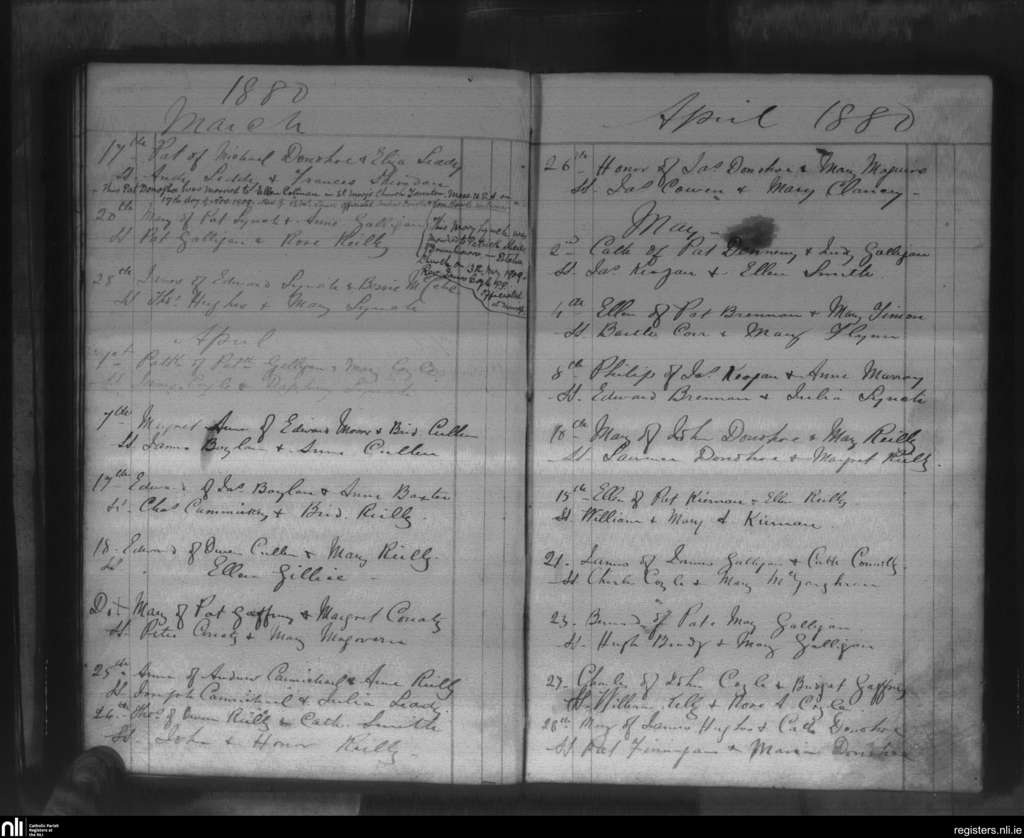 1880
March
17th Pat of Michael Donohoe & Eliza Leady
St. Andy Leddy & Frances Sheridan
This Pat Donogha was married to Ellen Colman in St Mary's Church Taunton, Mass. U.S.A. on
17th day of Nov. 1909.
20th Mary of Pat Lynch & Anne Galligan
St Pat Galligan & Rose Reilly
This Mary Lynch was married to Patrick
on 3rd 1909.
officiated
28th of Edward Lynch & Bessie
St Thos Hughes & Mary Lynch
April
1st Patk of Patk Galligan & Mary Coyle
St
7th Margret Anne of Edward Moore & Brid. Cullen
St James Boylan & Anne Cullen
17th Edward of Jas Boylan & Anne Baxter
St Chas Cammiskey & Brid. Reilly.
18. Edward of Owen Cullen & Mary Reilly.
St. Ellen Gillic
Do. Mary of Pat Gaffney & Margret Conaty
St. Peter Conaty & Mary Magovern
25th Anne of Andrew Carmichael & Anne Reilly
St. Joseph Carmichael & Julia Leady
26th Thos of Owen Reilly & Cath. Smith
St John & Honor Reilly.
April 1880
26th Honor of Jas Donohoe & Mary Maguire
St. Jas Cowen & Mary Clancy
May
2nd Cath of Pat Denneny & Brid. Galligan
St. Jas Keogan & Ellen Smith
4th Ellen of Pat Brennan & Mary
St. Bartle Corr & Mary Flynn
8th Philip of Jas Keogan & Anne Murray
St. Edward Brennan & Julia Lynch
10th Mary of John Donohoe & Mary Reilly
St Laurence Donohoe & Margret Reilly.
15th Ellen of Pat Kiernan & Ellen Reilly
St. William & Mary A. Kiernan.
21. James of James Galligan & Cath Connolly.
St Charles Coyle & Mary
23. Bernard of Pat & Mary Galligan
St. Hugh Brady & Mary Galligan
27. Charley of John Coyle & Bridget Gaffney
St. William Kelly & Rose A Coyle
28th Mary of James Hughes & Cath Donohoe
St Pat Finnegan & Maria Donohoe
nli
Catholic Parish
Registers at
the NLI
registers.nli.ie